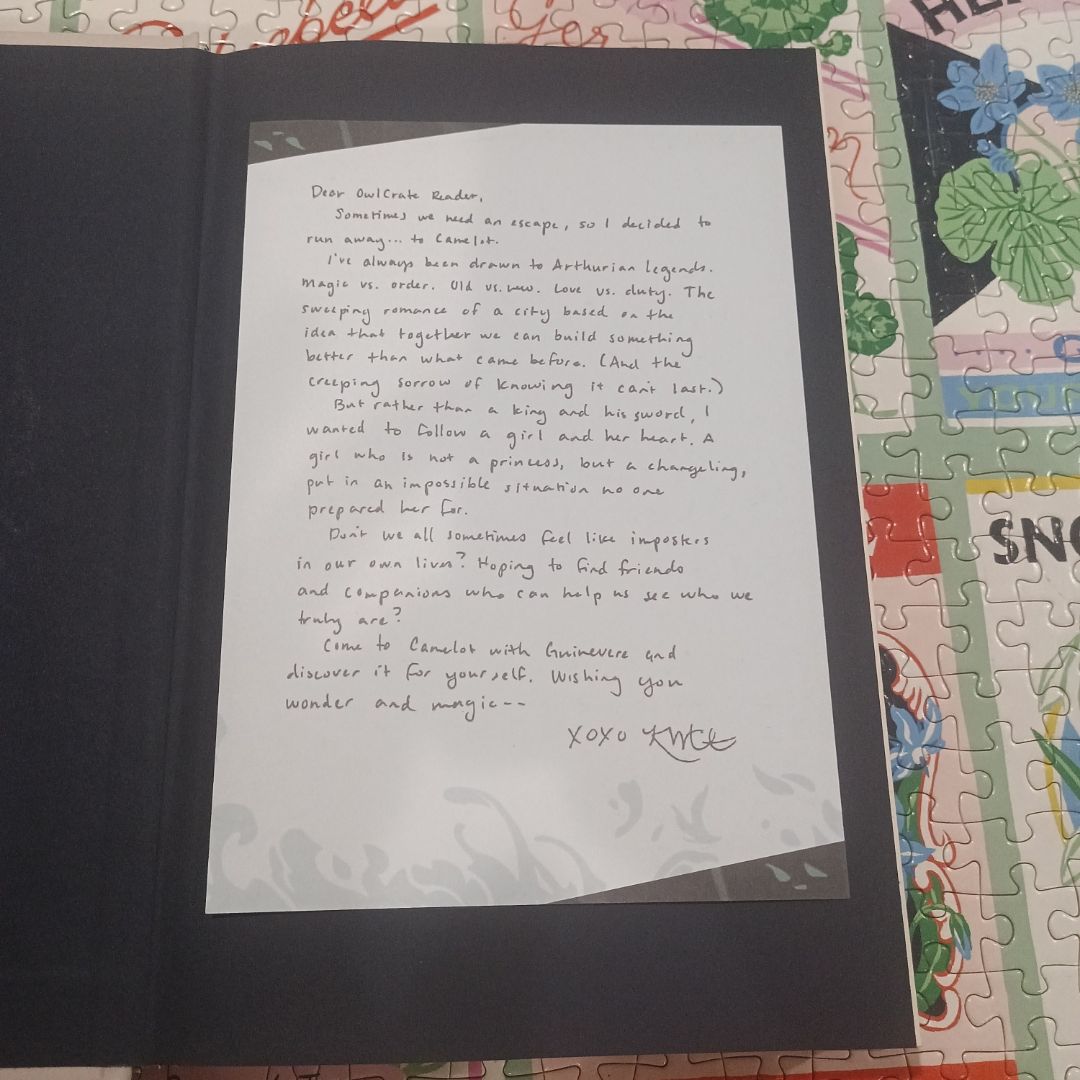 Dear OwlCrate Reader,
Sometimes we need an escape, so I decided to
run away... to Camelot.
I've always been drawn to Arthurian legends.
Magic vs. order. Old vs. new. Love vs. duty. The
sweeping romance of a city based on the
idea that together we can build something
better than what came before. (And the
creeping sorrow of knowing it can't last.)
But rather than a king and his sword, I
wanted to follow a girl and her heart. A
girl who is not a princess, but a changeling,
put in an impossible situation no one
prepared her for.
Don't we all sometimes feel like imposters
in our own lives? Hoping to find friends
and companions who can help us see who we
truly are?
Come to Camelot with Guinevere and
discover it for yourself. Wishing you
wonder and magic--
XOXO
SNO